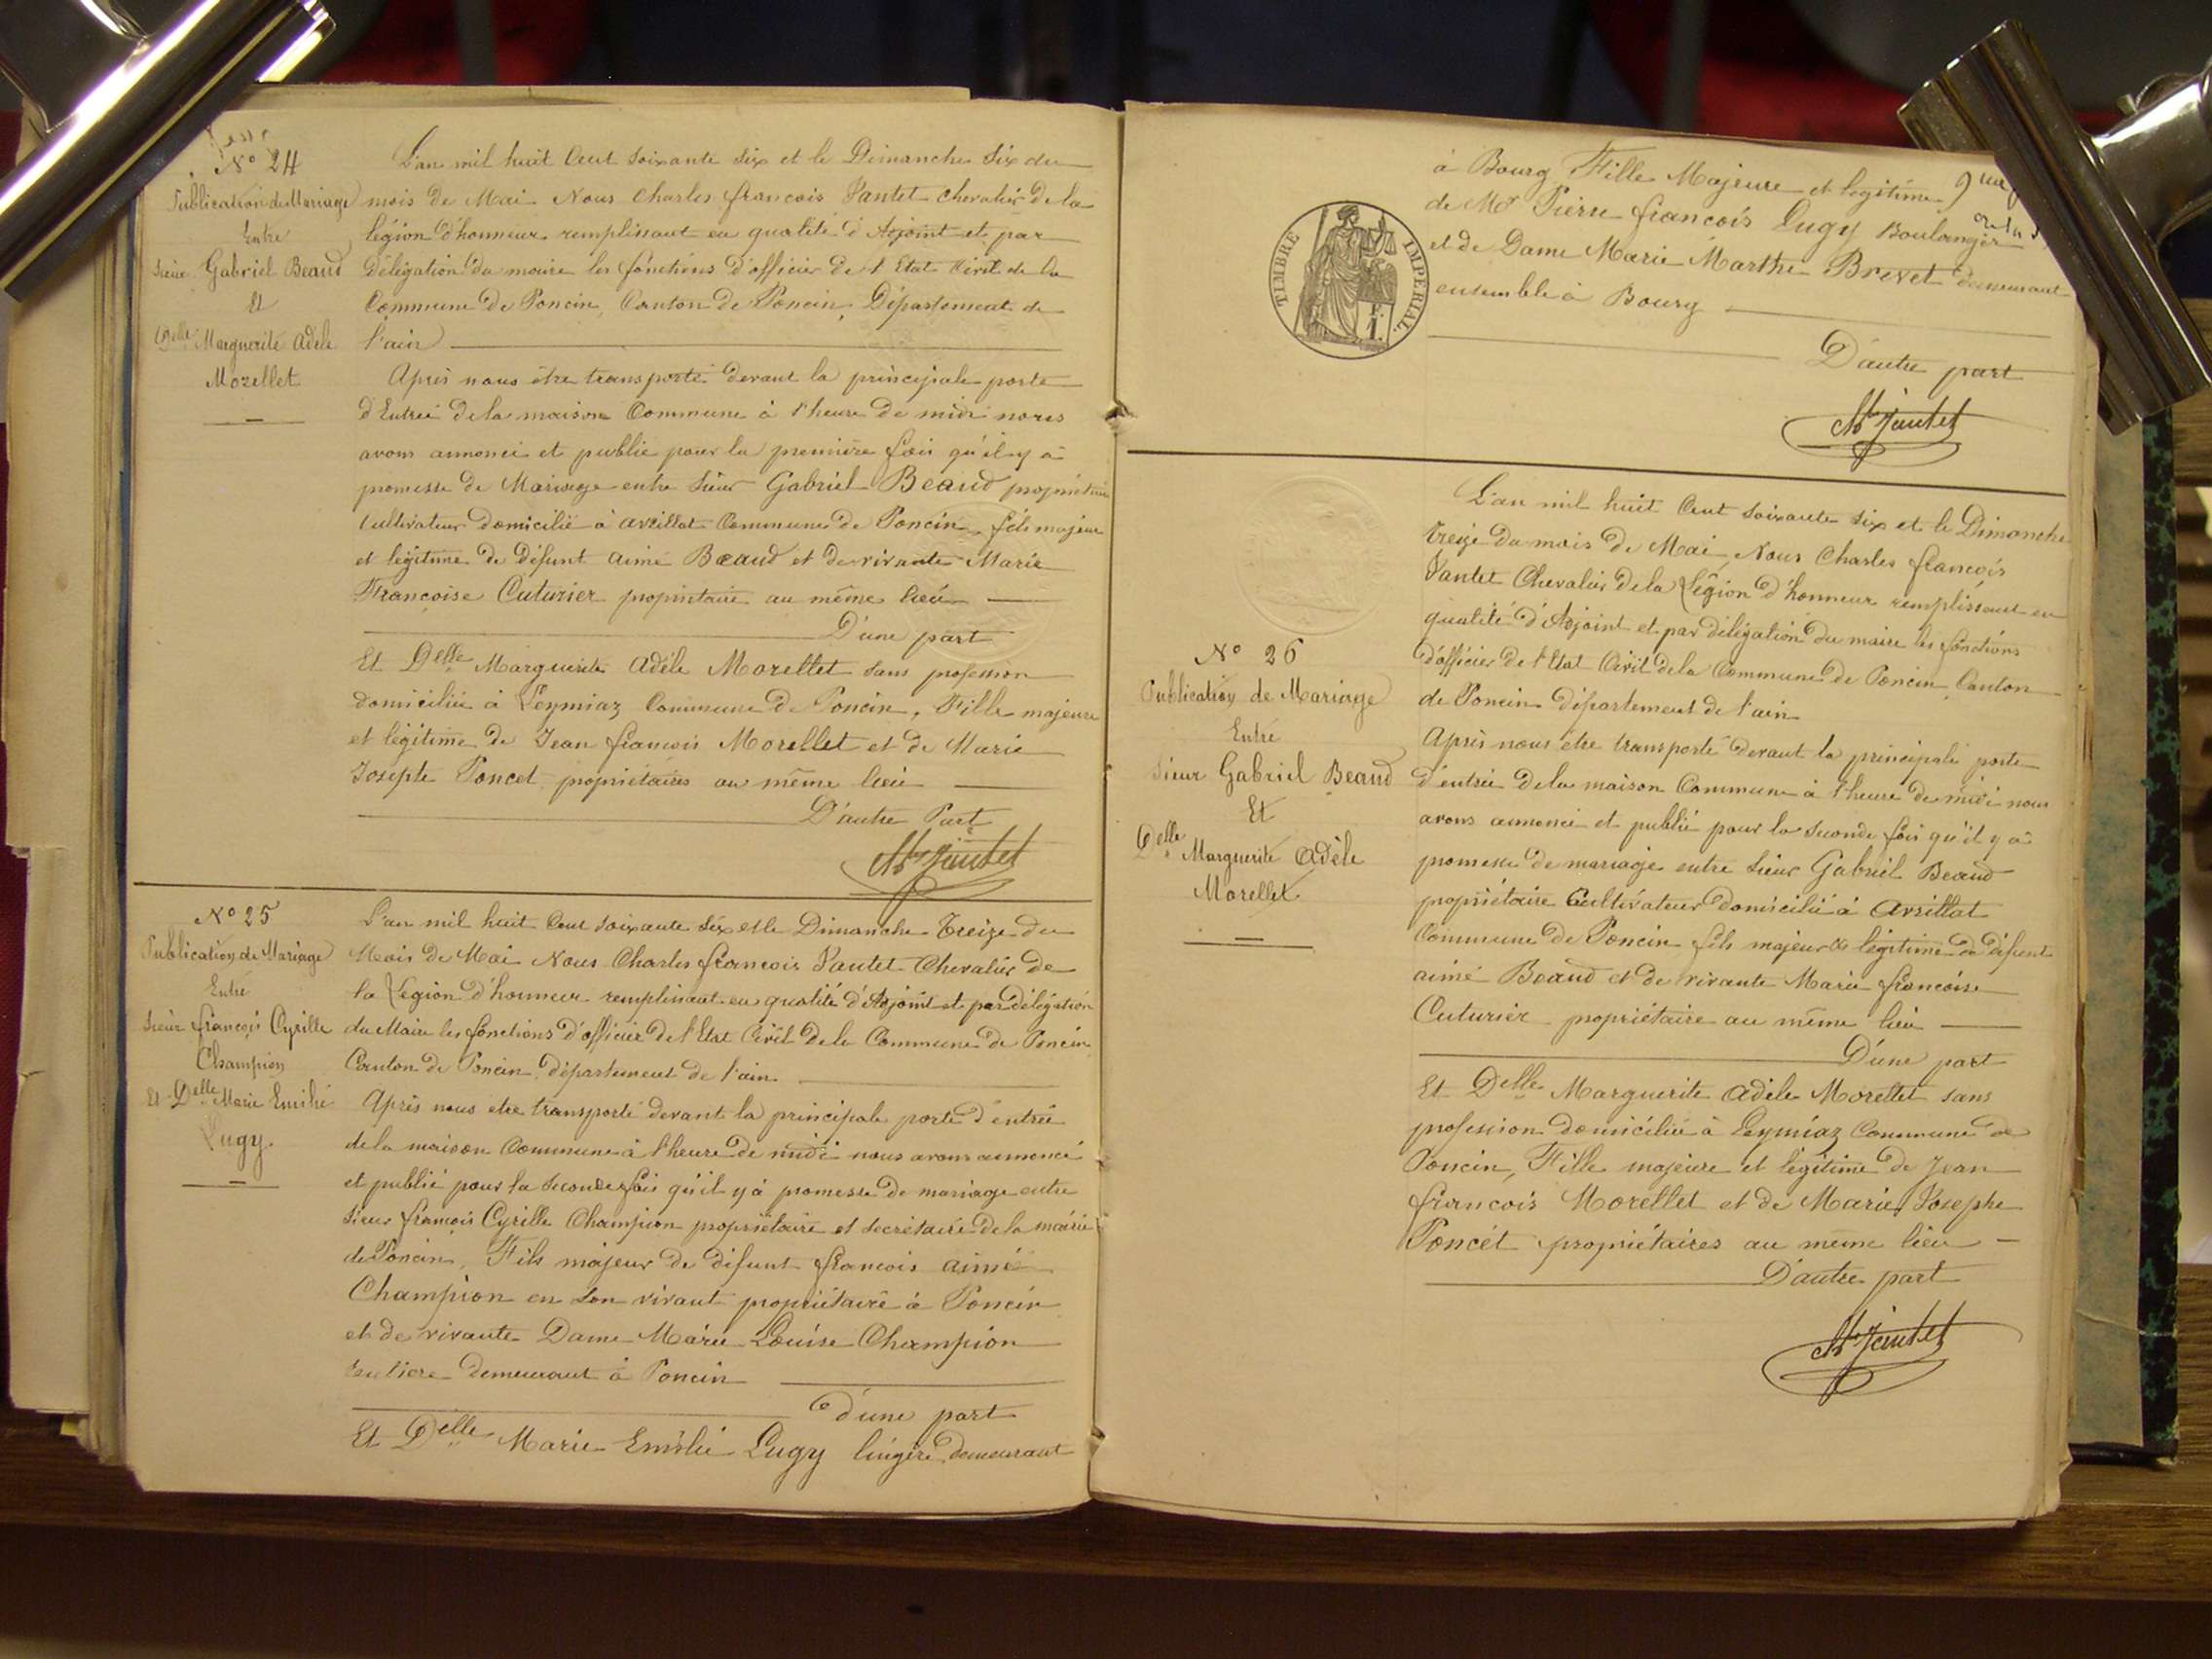 No 24
Publication de Mariage
Entre
Sieur Gabriel Beaud
Et
Delle Marguerite Adèle
Morellet
L'an mil huit Cent soixante Six et le Dimanche Six du
mois de Mai Nous Charles françois Vantet chevalier de la
légion d'honneur remplissant en qualité d'Adjoint et par
Délégation du maire les fonctions d'officier de l'Etat Civil de la
Commune de Poncin, Canton de Poncin, Département de
l'ain
Après nous être transporté devant la principale porte
d'Entrée de la maison Commune à l'heure de midi nous
avons annoncé et publié pour la première fois qu'il y a
promesse de Mariage entre Sieur Gabriel Beaud propriétaire
Cultivateur domicilié à avrillat Commune de Poncin, fils majeur
et légitime de défunt aimé Beaud et de vivante Marie
Françoise Cuturier propriétaire au même lieu
D'une part
Et Delle Marguerite Adèle Morellet sans profession
domiciliée à Leymiaz Commune de Poncin, Fille majeure
et légitime de Jean françois Morellet et de Marie
Josephte Poncet propriétaires au même lieu
D'autre Part
No 25
Publication de Mariage
Entre
Sieur françois Cyrille
Champion
Et Delle Marie Emilie
Lugy.
L'an mil huit Cent soixante Six et le Dimanche Treize du
Mois de Mai Nous Charles françois Vantet Chevalier de
la Légion d'honneur remplissant en qualité d'Adjoint et par délégation
du Maire les fonctions d'officier de l'Etat Civil de la Commune de Poncin
Canton de Poncin, département de l'ain
Après nous etre transporté devant la principale porte d'entrée
de la maison Commune à l'heure de midi nous avons annoncé
et publié pour la seconde fois qu'il y à promesse de mariage entre
Sieur françois Cyrille Champion propriétaire et secrétaire de la mairie
de Poncin, Fils majeur de défunt françois aimé
Champion en son vivant propriétaire à Poncin
et de vivante Dame Marie Louise Champion
rentière demeurant à Poncin
d'une part
Et Delle Marie Emélie Lugy lingère demeurant
à Bourg, Fille Majeure et légitime
de Mr Pierre françois Lugy Boulanger
et de Dame Marie Marthe Brevet demeurant
ensemble à Bourg
D'autre part
TIMBRE IMPÉRIAL
No 26
Publication de Mariage
Entre
Sieur Gabriel Beaud
Et
Delle Marguerite Adèle
Morellet
L'an mil huit Cent soixante Six et le Dimanche
treize du mois de Mai, Nous Charles françois
Vantet Chevalier de la Légion d'honneur remplissant en
qualité d'Adjoint et par délégation du maire les fonctions
d'officier de l'Etat Civil de la Commune de Poncin Canton
de Poncin département de l'ain
Après nous être transporté devant la principale porte
d'entrée de la maison Commune à l'heure de midi nous
avons annoncé et publié pour la seconde fois qu'il y a
promesse de mariage entre Sieur Gabriel Beaud
propriétaire Cultivateur domicilié à Avrillat
Commune de Poncin fils majeur & légitime de défunt
aimé Beaud et de vivante Marie françoise
Cuturier propriétaire au même lieu
D'une part
Et Delle Marguerite Adèle Morellet sans
profession domiciliée à Leymiaz Commune de
Poncin, Fille majeure et légitime de Jean
françois Morellet et de Marie Josephe
Poncet propriétaires au même lieu
D'autre part